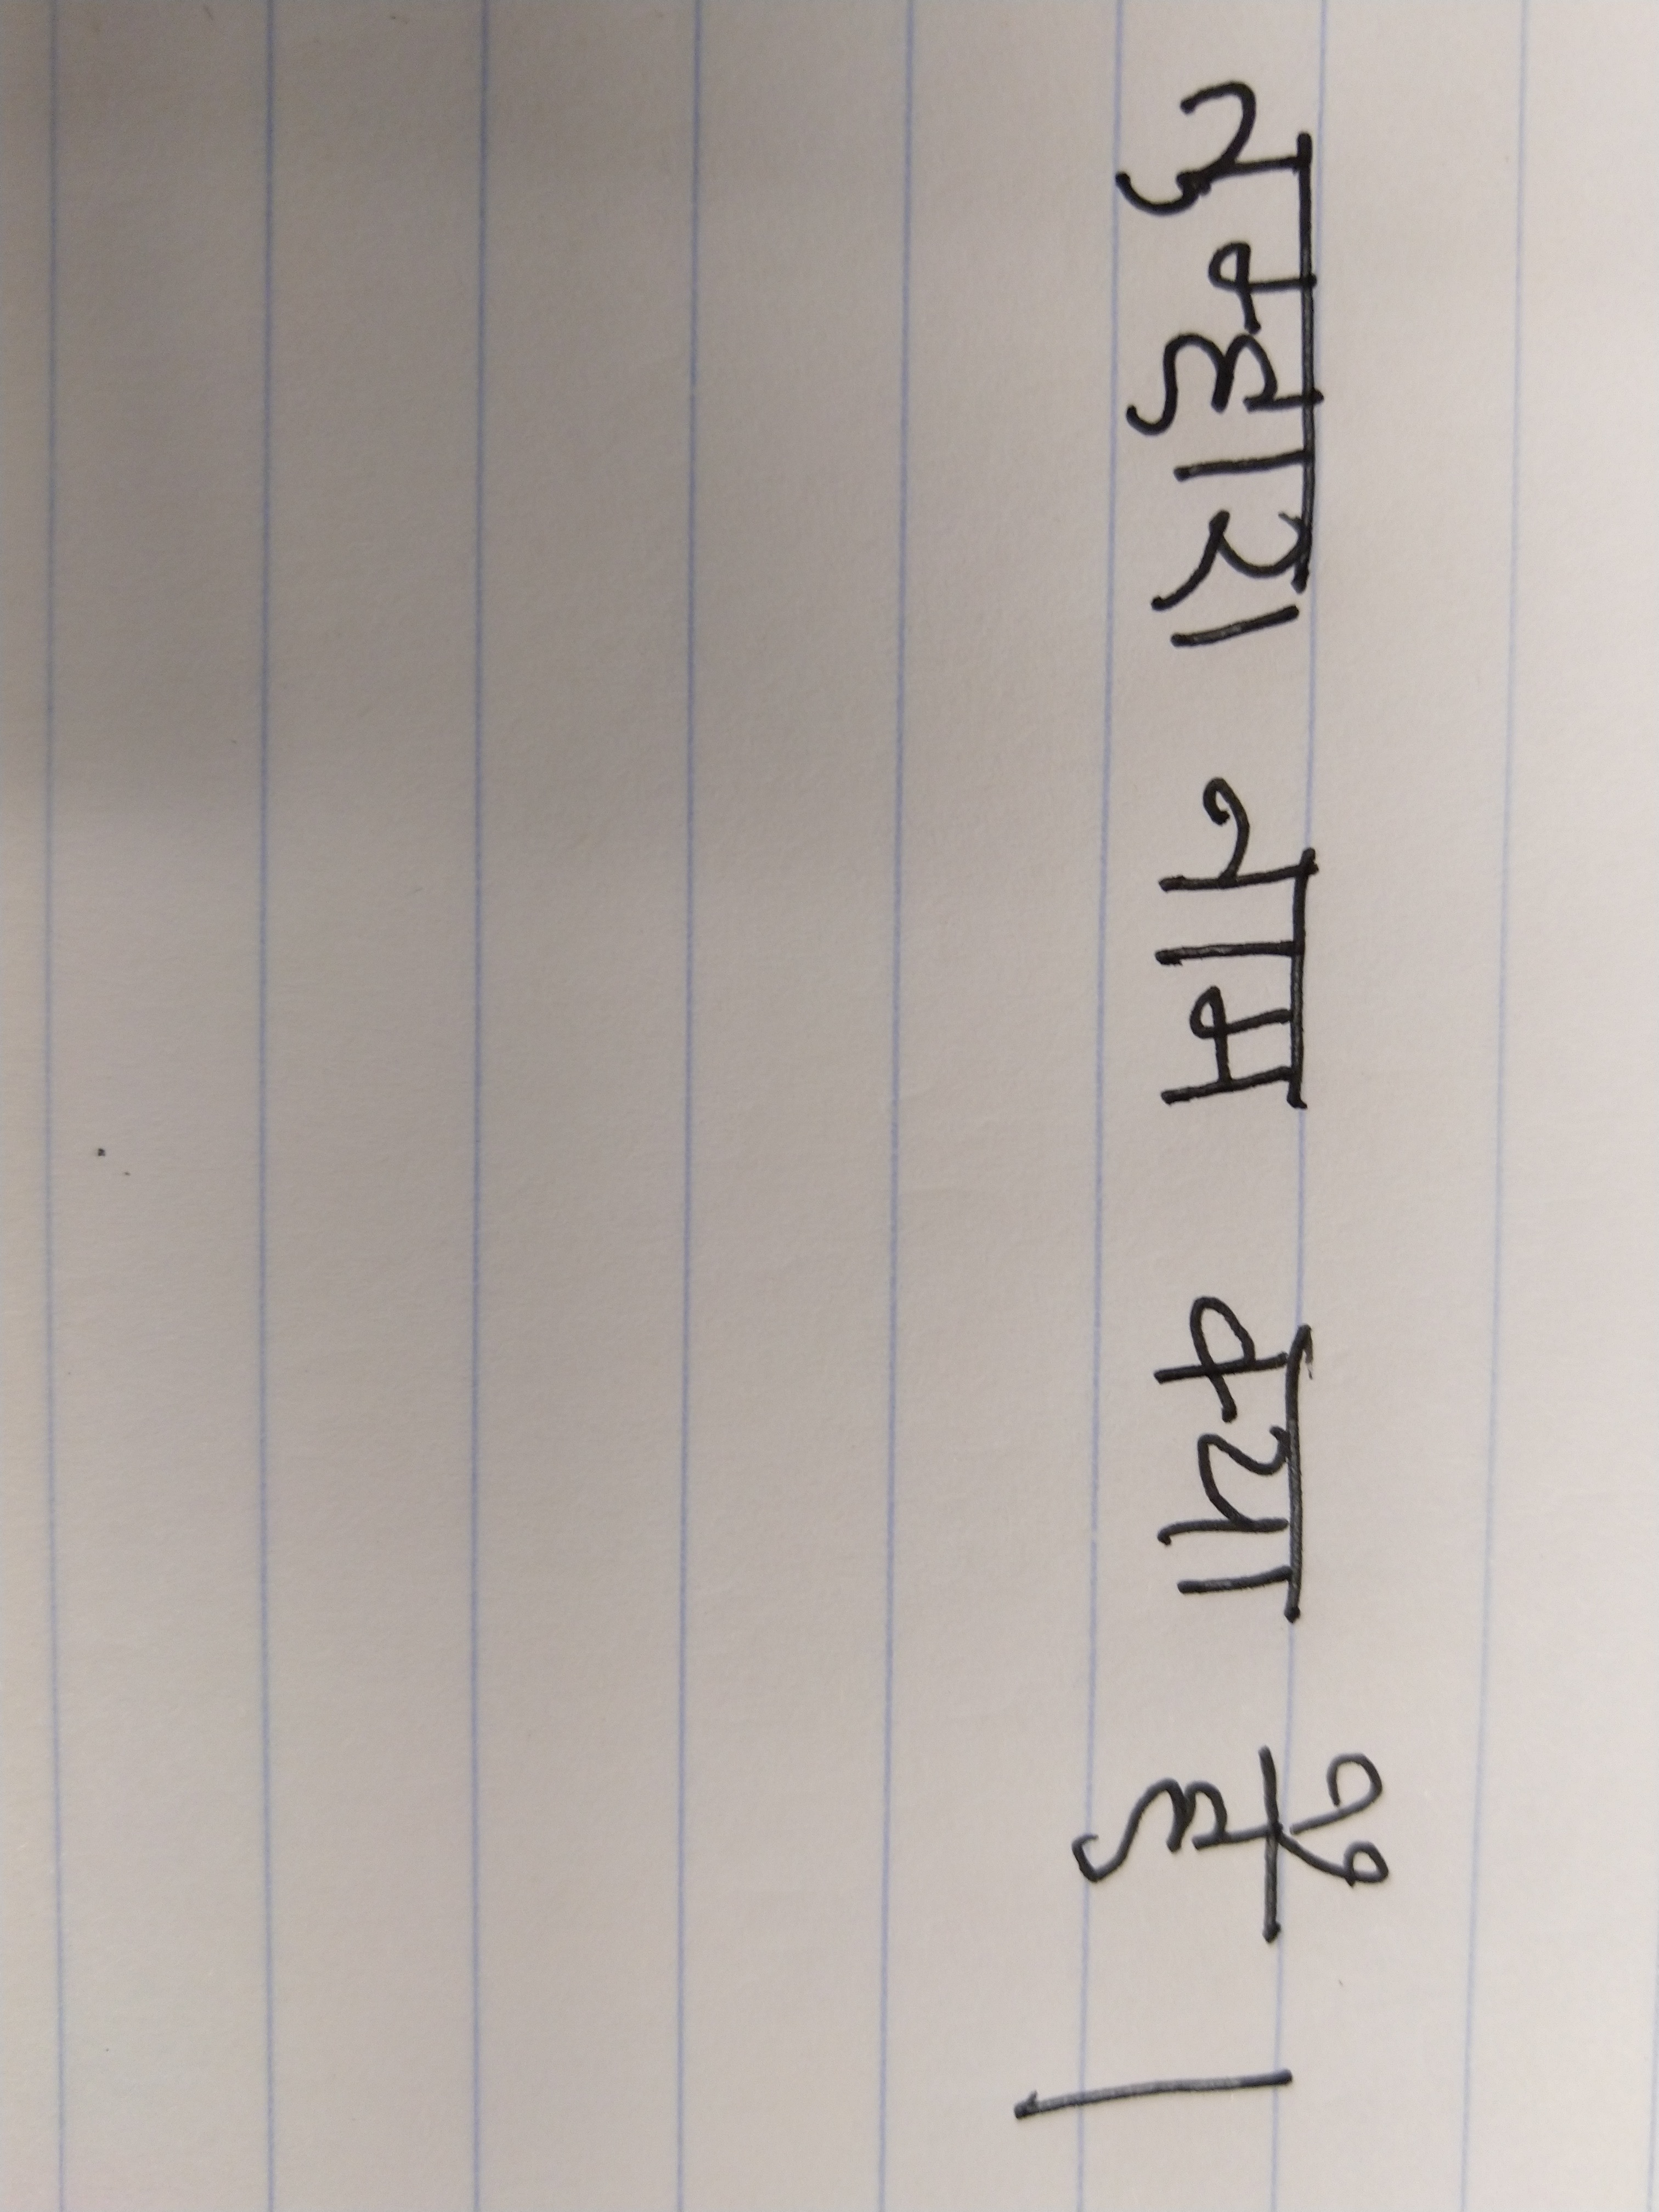 तुम्हारा नाम क्या है ।